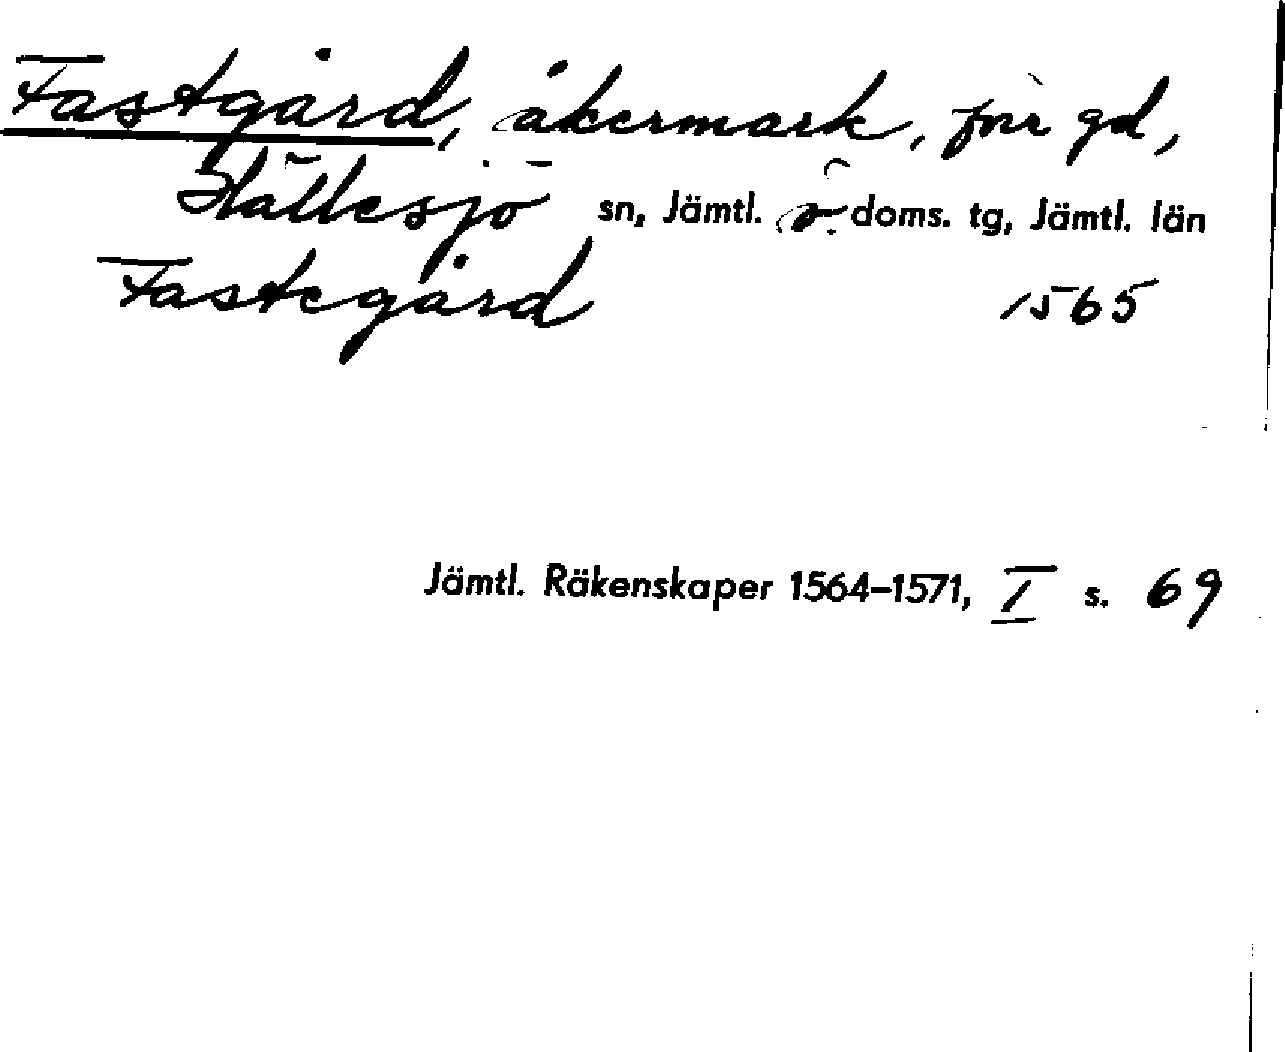 Fastgård, åkermark, förr gd,
Hällesjö sn, Jämtl. ö. doms. tg, Jämtl. län
Fastegård 1565
Jämtl. Räkenskaper 1564–1571, I s. 69